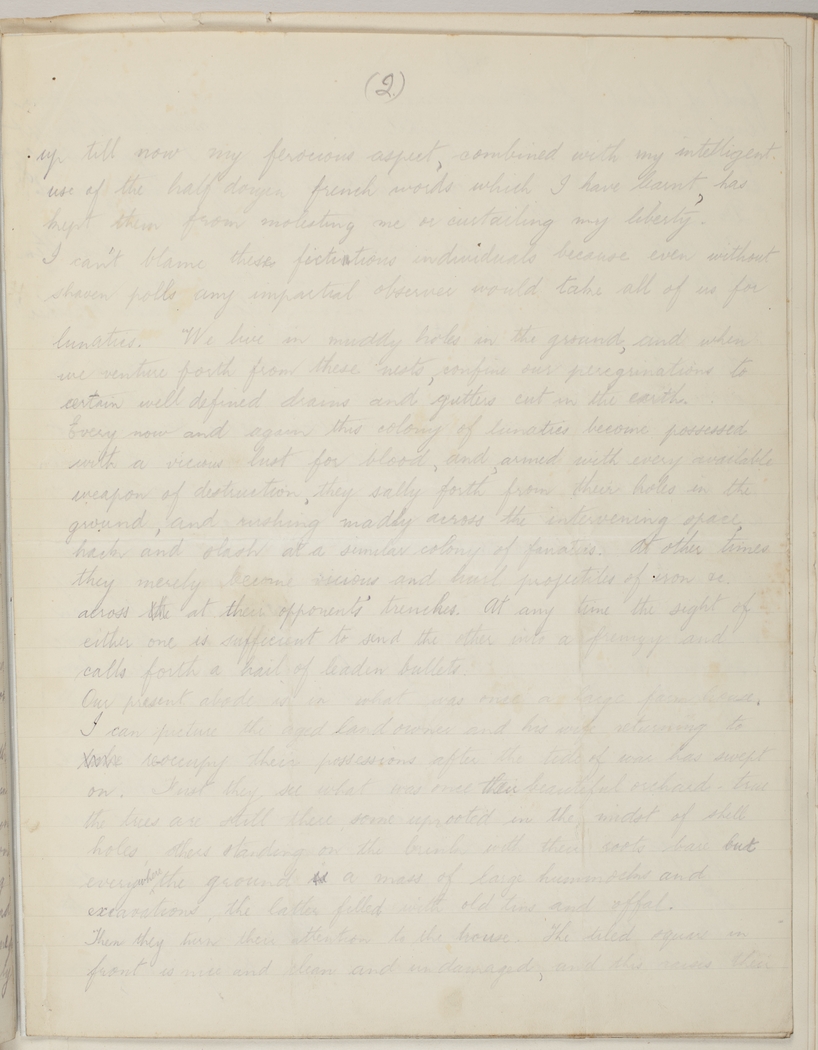 (2)
up till now my ferocious aspect, combined with my intelligent
use of the half dozen french words which I have learnt, has
kept them from molesting me or curtailing my liberty.
I can't blame these fictitious individuals because even without
shaven polls any impartial observer would take all of us for
lunatics. We live in muddy holes in the ground, and when
we venture forth from these nests, confine our peregrinations to
certain well defined drains and gutters cut in the earth.
Every now and again this colony of lunatics become possessed
with a vicious lust for blood, and, armed with every available
weapon of destruction, they sally forth from their holes in the
ground, and rushing madly across the intervening space,
hack and slash at a similar colony of lunatics. At other times
they merely become vicious and hurl projectiles of iron
across the at their opponents' trenches. At any time the sight of
either one is sufficient to send the other into a frenzy and
calls forth a hail of leaden bullets.
Our present abode is in what was once a large farm house.
I can picture the aged landowner and his wife returning to
reoccupy their possessions after the tide of war has swept
on. First they see what was once their beautiful orchard - true
the trees are still there, some uprooted in the midst of shell
holes, others standing on the brink with their roots bare but
everywhere the ground is a mass of large hummocks and
excavations, the latter filled with old tins and offal.
Then they turn their attention to the house. The tiled square in
front is nice and clean and undamaged, and this raises their